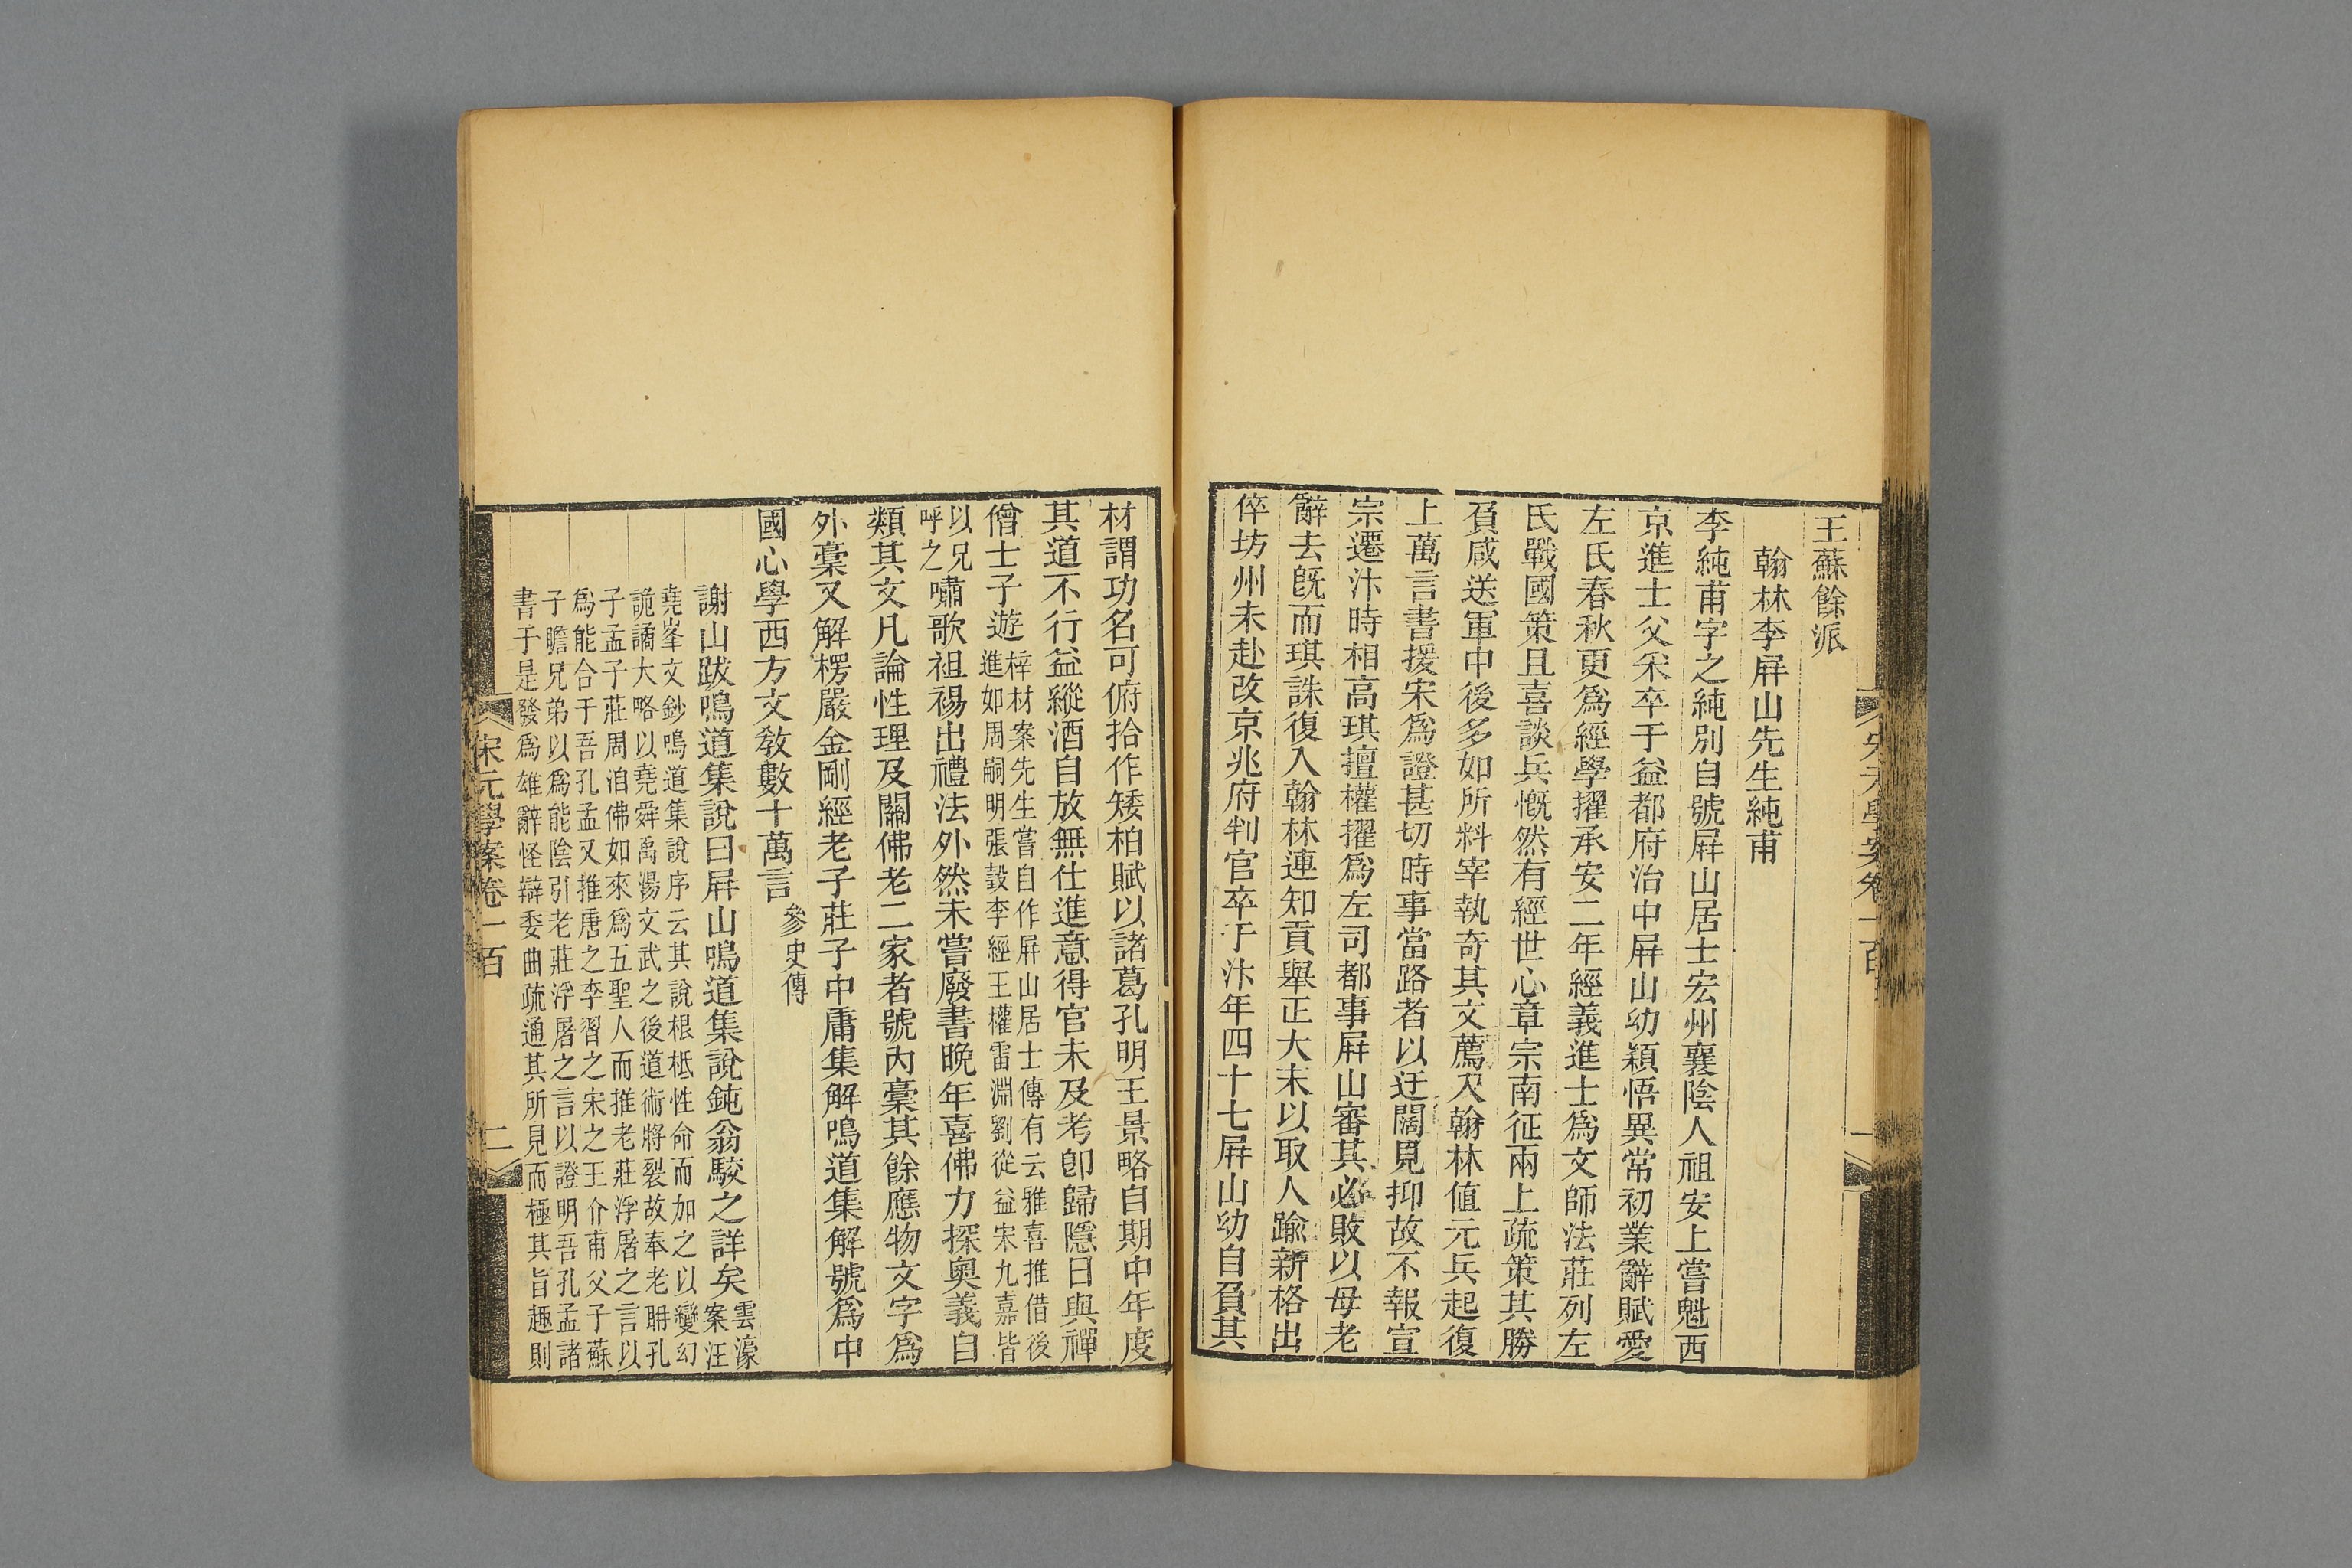 王蘇餘派
翰林李屏山先生純甫
李純甫字之純別自號屏山居士宏州襄陰人祖安上嘗魁西
京進士父宷卒于益都府治中屏山幼穎悟異常初業辭賦愛
左氏春秋更爲經學擢承安二年經義進士爲文師法莊列左
氏戰國策且喜談兵慨然有經世心章宗南征兩上疏策其勝
負咸送軍中後多如所料宰執奇其文薦入翰林値元兵起復
上萬言書援宋爲證甚切時事當路者以迂闊見抑故不報宣
宗遷汴時相高琪擅權擢爲左司都事屏山審其必敗以母老
辭去旣而琪誅復入翰林連知貢舉正大末以取人踰新格出
倅坊州未赴改京兆府判官卒于汴年四十七屏山幼自負其
材謂功名可俯拾作矮柏賦以諸葛孔明王景略自期中年度
其道不行益縱酒自放無仕進意得官未及考卽歸隱日與禪
僧士子遊
梓材案先生嘗自作屏山居士傳有云雅喜推借後
進如周嗣明張瑴李經王權雷淵劉從益宋九嘉皆
以兄
呼之
嘯歌祖裼出禮法外然未嘗廢書晚年喜佛力探奧義自
類其文凡論性理及關佛老二家者號內稾其餘應物文字爲
外稾又解楞嚴金剛經老子莊子中庸集解鳴道集解號爲中
國心學西方文敎數十萬言
參史傳
謝山跋鳴道集說曰屏山鳴道集說鈍翁駮之詳矣
雲濠
案汪
堯峯文鈔鳴道集說序云其說根柢性命而加之以變幻
詭譎大略以堯舜禹湯文武之後道術將裂故奉老耼孔
子孟子莊周洎佛如來爲五聖人而推老莊浮屠之言以
爲能合于吾孔孟又推唐之李習之宋之王介甫父子蘇
子瞻兄弟以爲能陰引老莊浮屠之言以證明吾孔孟諸
書于是發爲雄辭怪辯委曲疏通其所見而極其旨趣則
宋元學案卷一百
二